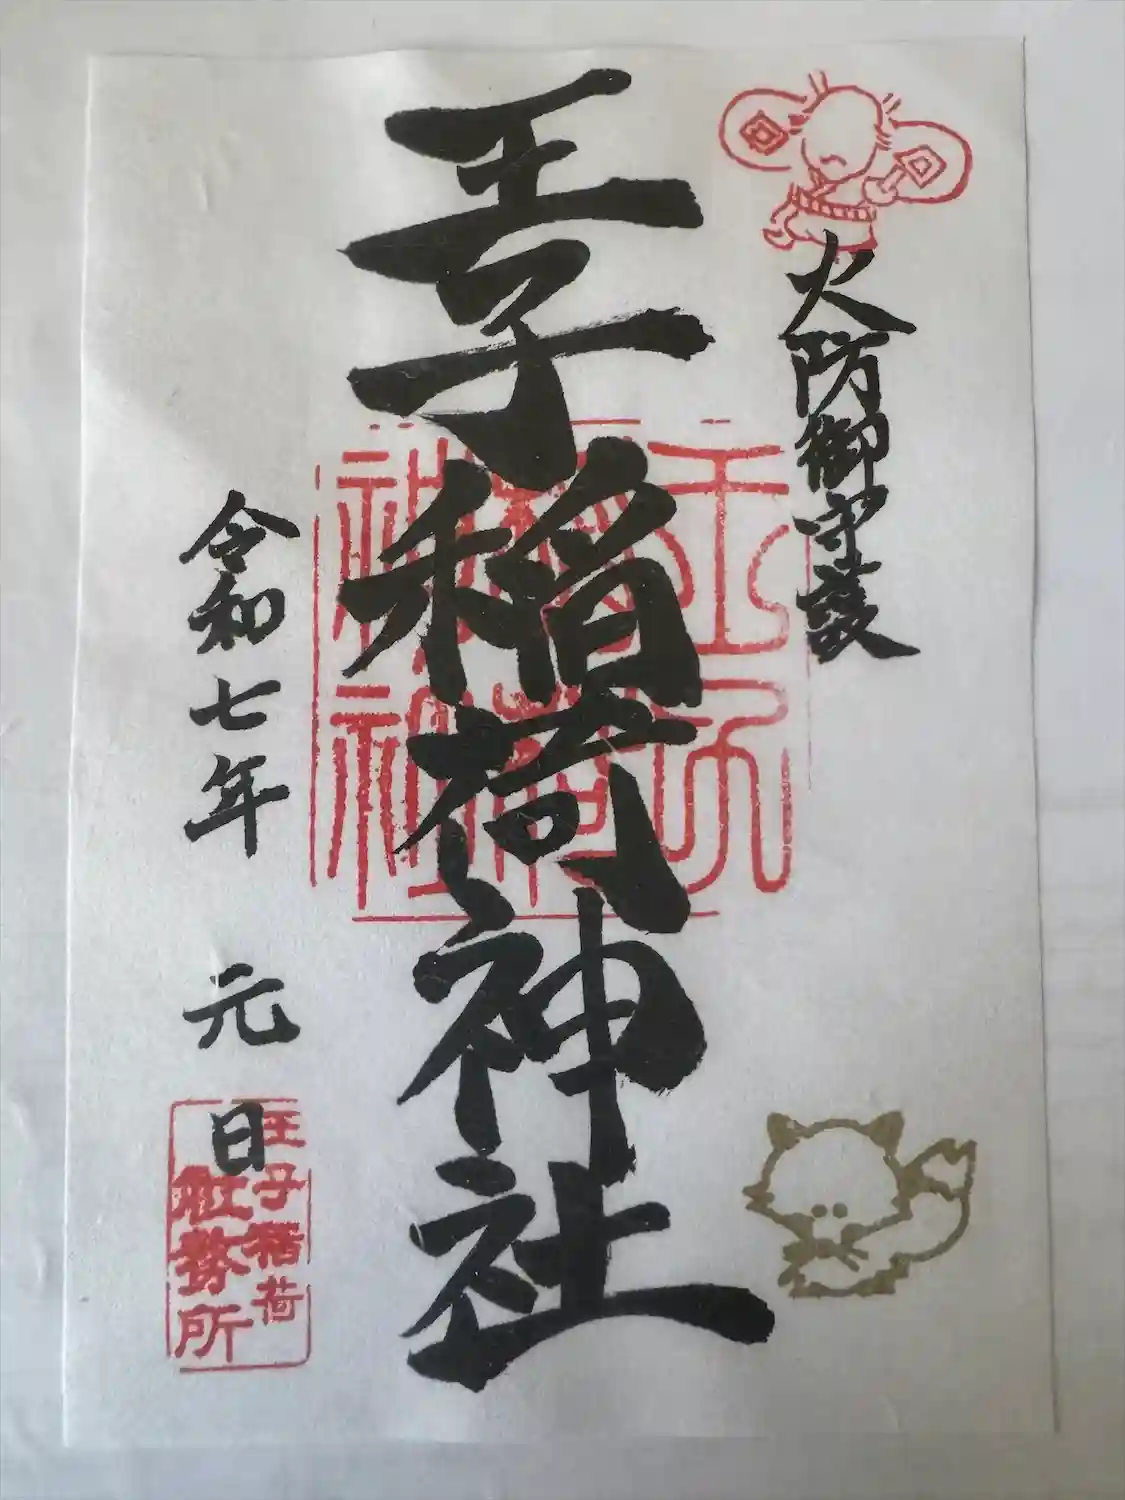 火防御守護
王子稲荷神社
王子
稲荷
神社
令和七年 元日
王子稲荷
社務所